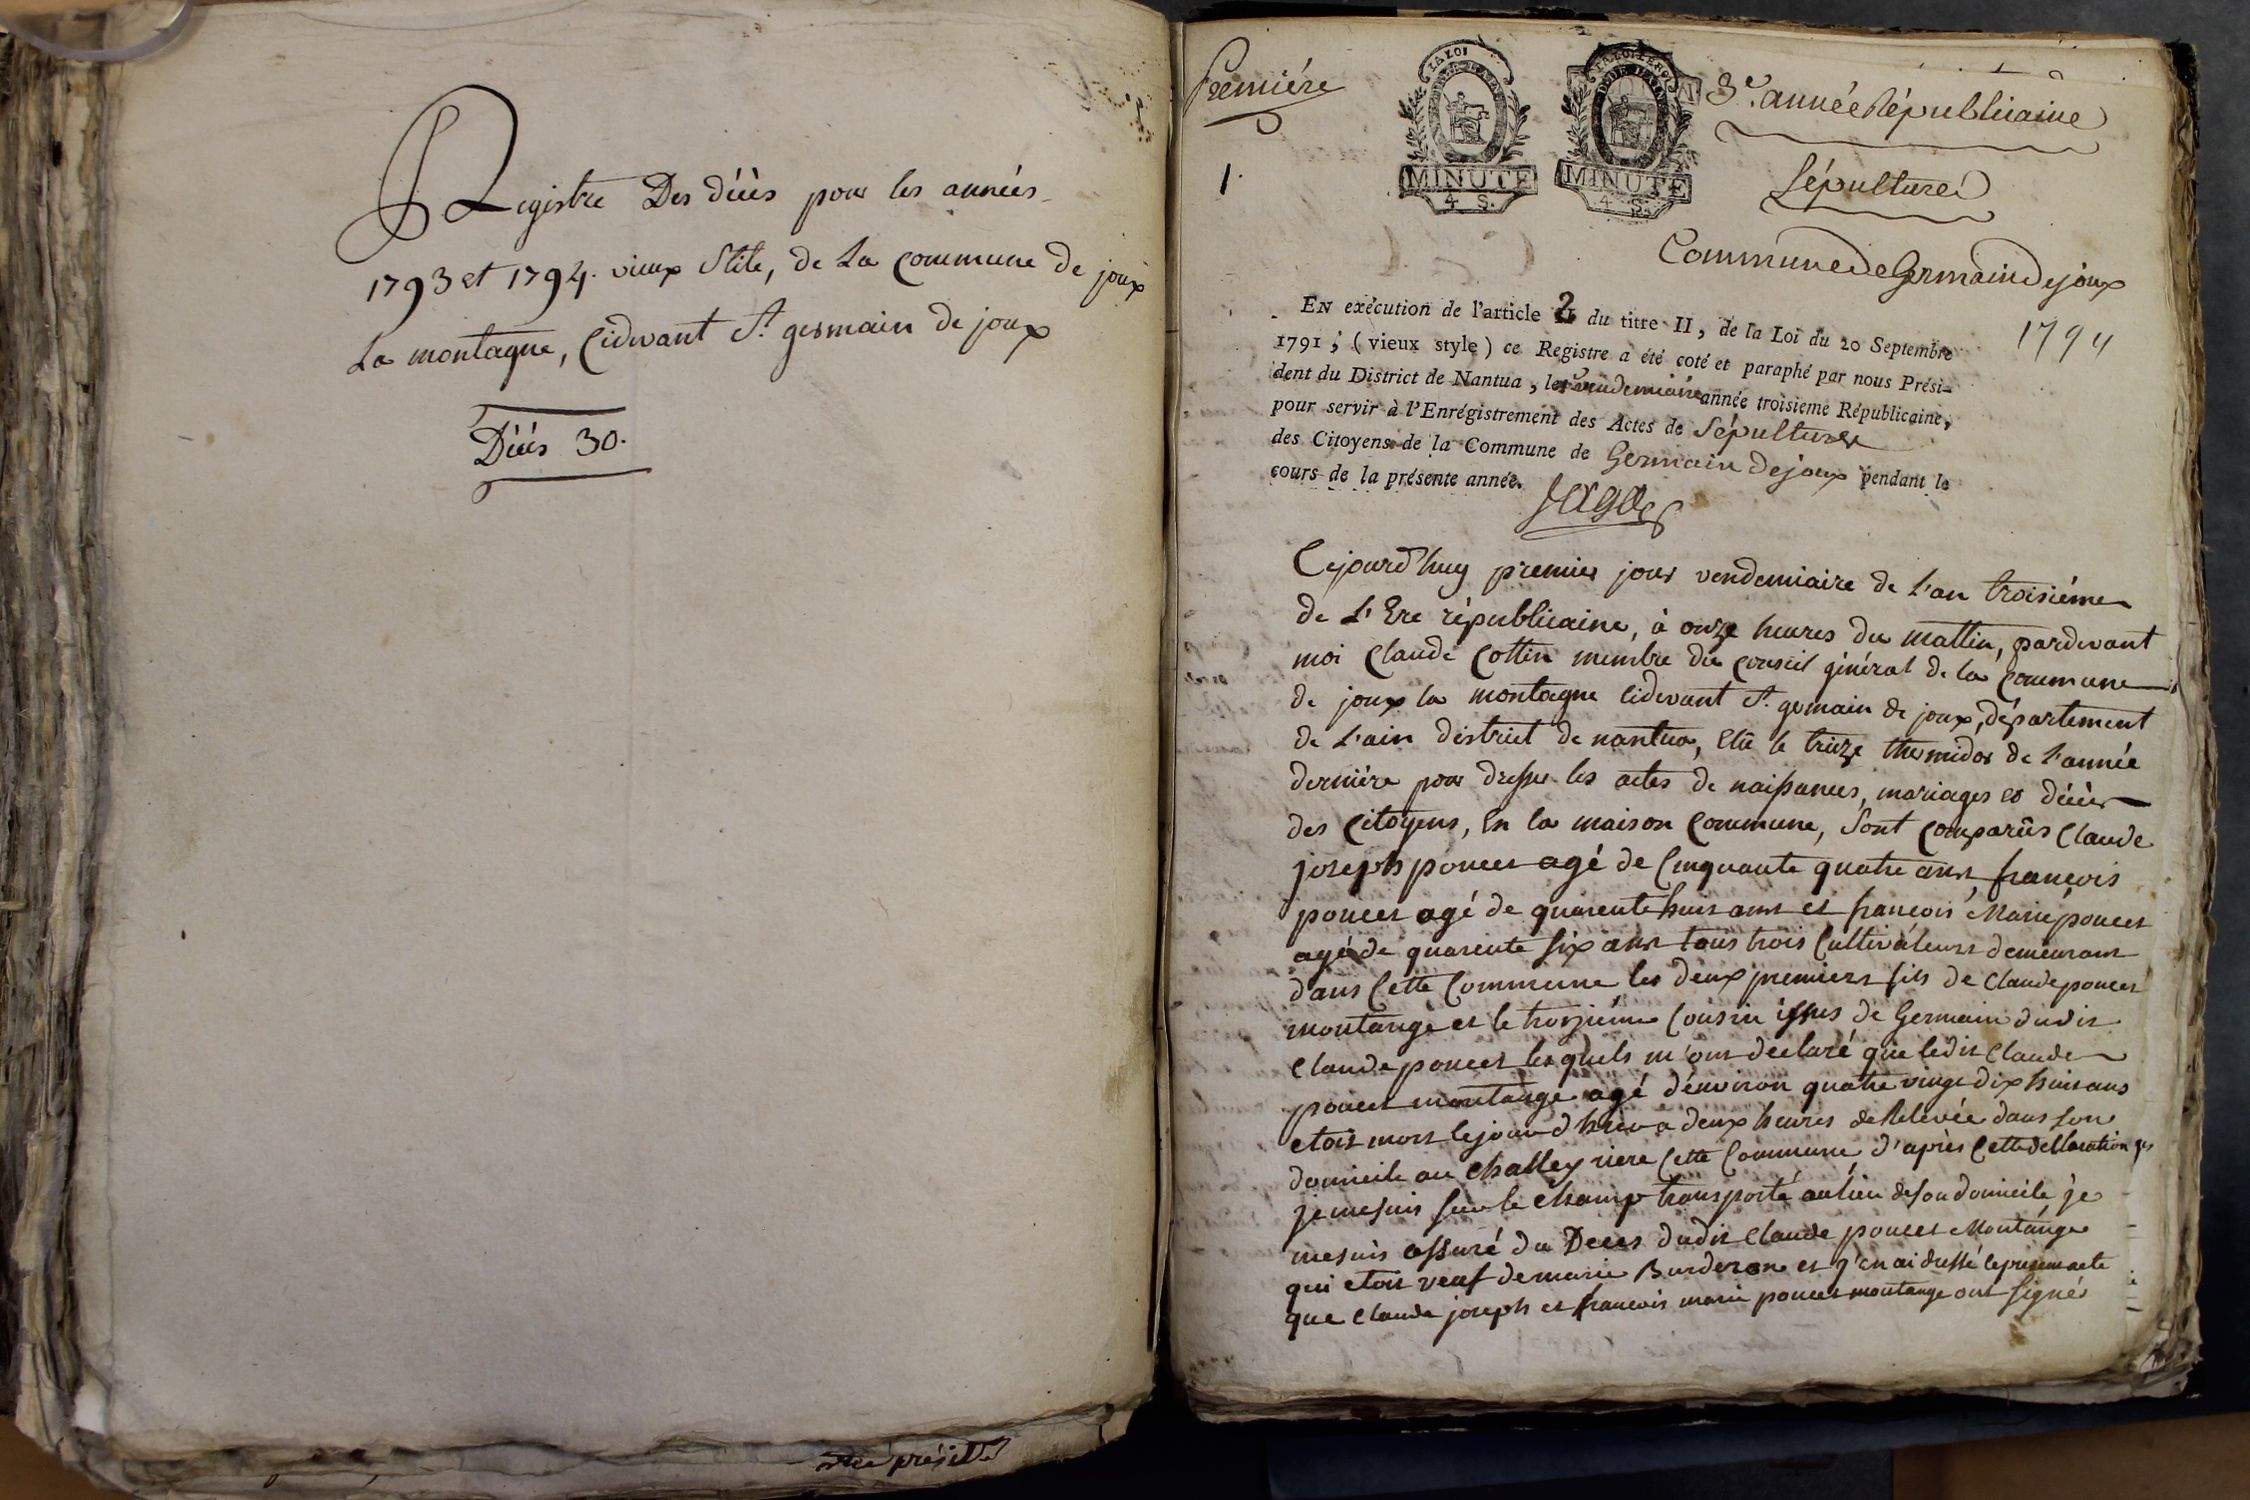 Registre Des décès pour les années
1793 et 1794. vieux Stile, de La Commune de joux
La montagne, Cidevant St. germain de joux
Décès 30.
Premiére
1.
LA LOI
MINUTE
4 S.
MINUTE
4 S.
3e. année Républicaine
Sépultures
Commune de Germain Dejoux
1794
EN exécution de l'article 2 du titre II, de la Loi du 20 Septembre
1791 ; ( vieux style ) ce Registre a été coté et paraphé par nous Prési-
dent du District de Nantua, le vendemiaire année troisieme Républicaine,
pour servir à l'Enrégistrement des Actes de Sépultures
des Citoyens de la Commune de Germain Dejoux pendant le
cours de la présente année.
Cejourd'huy premier jour vendemiaire de L'an troisiéme
de L'Ere républicaine, à onze heures du mattin, pardevant
moi Claude Cottin membre du conseil général de la Commune
de joux la montagne cidevant St. germain de joux, département
de L'ain district de nantua, Elû le treize thermidor de L'année
derniére pour dresser les actes de naissances, mariages et décès
des Citoyens, En la maison Commune, Sont comparûs Claude
joseph poncet agé de Cinquante quatre ans, francois
poncet agé de quarente huit ans et francois Marie poncet
agé de quarente six ans tous trois Cultivateurs demeurant
dans Cette Commune les deux premiers fils de Claude poncet
montange et le troizieme Cousin issus de Germain dudit
Claude poncet lesquels m'ont declaré que ledit Claude
poncet montange agé d'environ quatre vingt dix huit ans
etoit mort lejourd'huy a deux heures de Relevée dans son
domicile au Challey riere Cette Commune d'après Cette declaration
je me suis sur le champ transporté au lieu de son domicile, je
me suis assuré du Deces dudit Claude poncet Montange
qui etoit veuf de marie Burderon et j'en ai dressé le present acte
que Claude joseph et francois marie poncet montange ont signés